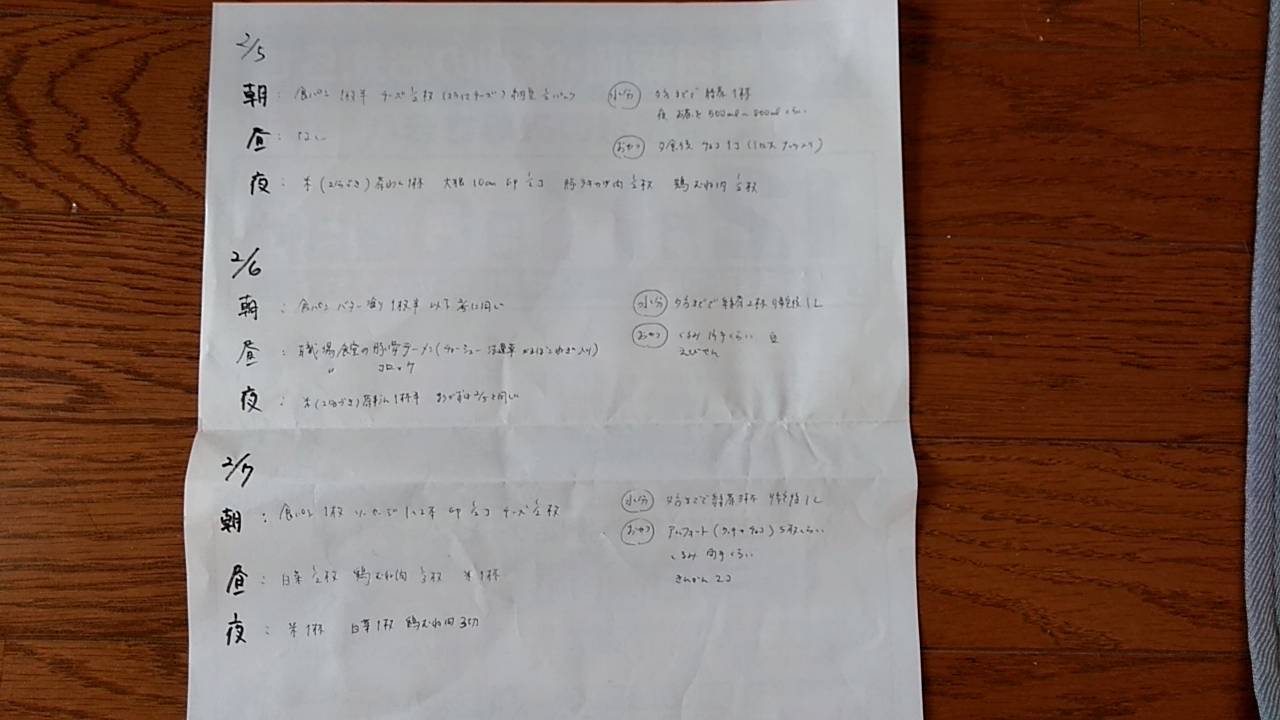 2/5
朝: 食パン 1枚半 チーズ 1/2枚 (とろけるチーズ) 納豆 1/2パック
水分 夕方までで 緑茶 1杯
夜 お茶を 500ml~800mlくらい
昼: なし
おやつ 夕食後 チョコ 1コ (ナッツ入り)
夜: 米 (2分づき) 茶わん 1杯 大根 10cm 卵 1/2コ 豚 肉 1/2枚 鶏むね肉 1/2枚
2/6
朝: 食パン バター塗り 1枚半 以下 に同じ
水分 夕方までで 緑茶 2杯 1L
昼: 職場食堂の豚骨ラーメン (チャーシュー 入り)
〃 コロッケ
おやつ くるみ 片手くらい 豆
えびせん
夜: 米 (2分づき) 茶わん 1杯半 おかずは 2/5と同じ
2/7
朝: 食パン 1枚 ソーセージ 1~2本 卵 1/2コ チーズ 1/2枚
水分 夕方までで 緑茶 3杯 1L
おやつ アルフォート (クッキーチョコ) 5枚くらい
くるみ 片手くらい
きんかん 2コ
昼: 白菜 1/2枚 鶏むね肉 1/2枚 米 1杯
夜: 米 1杯 白菜 1枚 鶏むね肉 3切